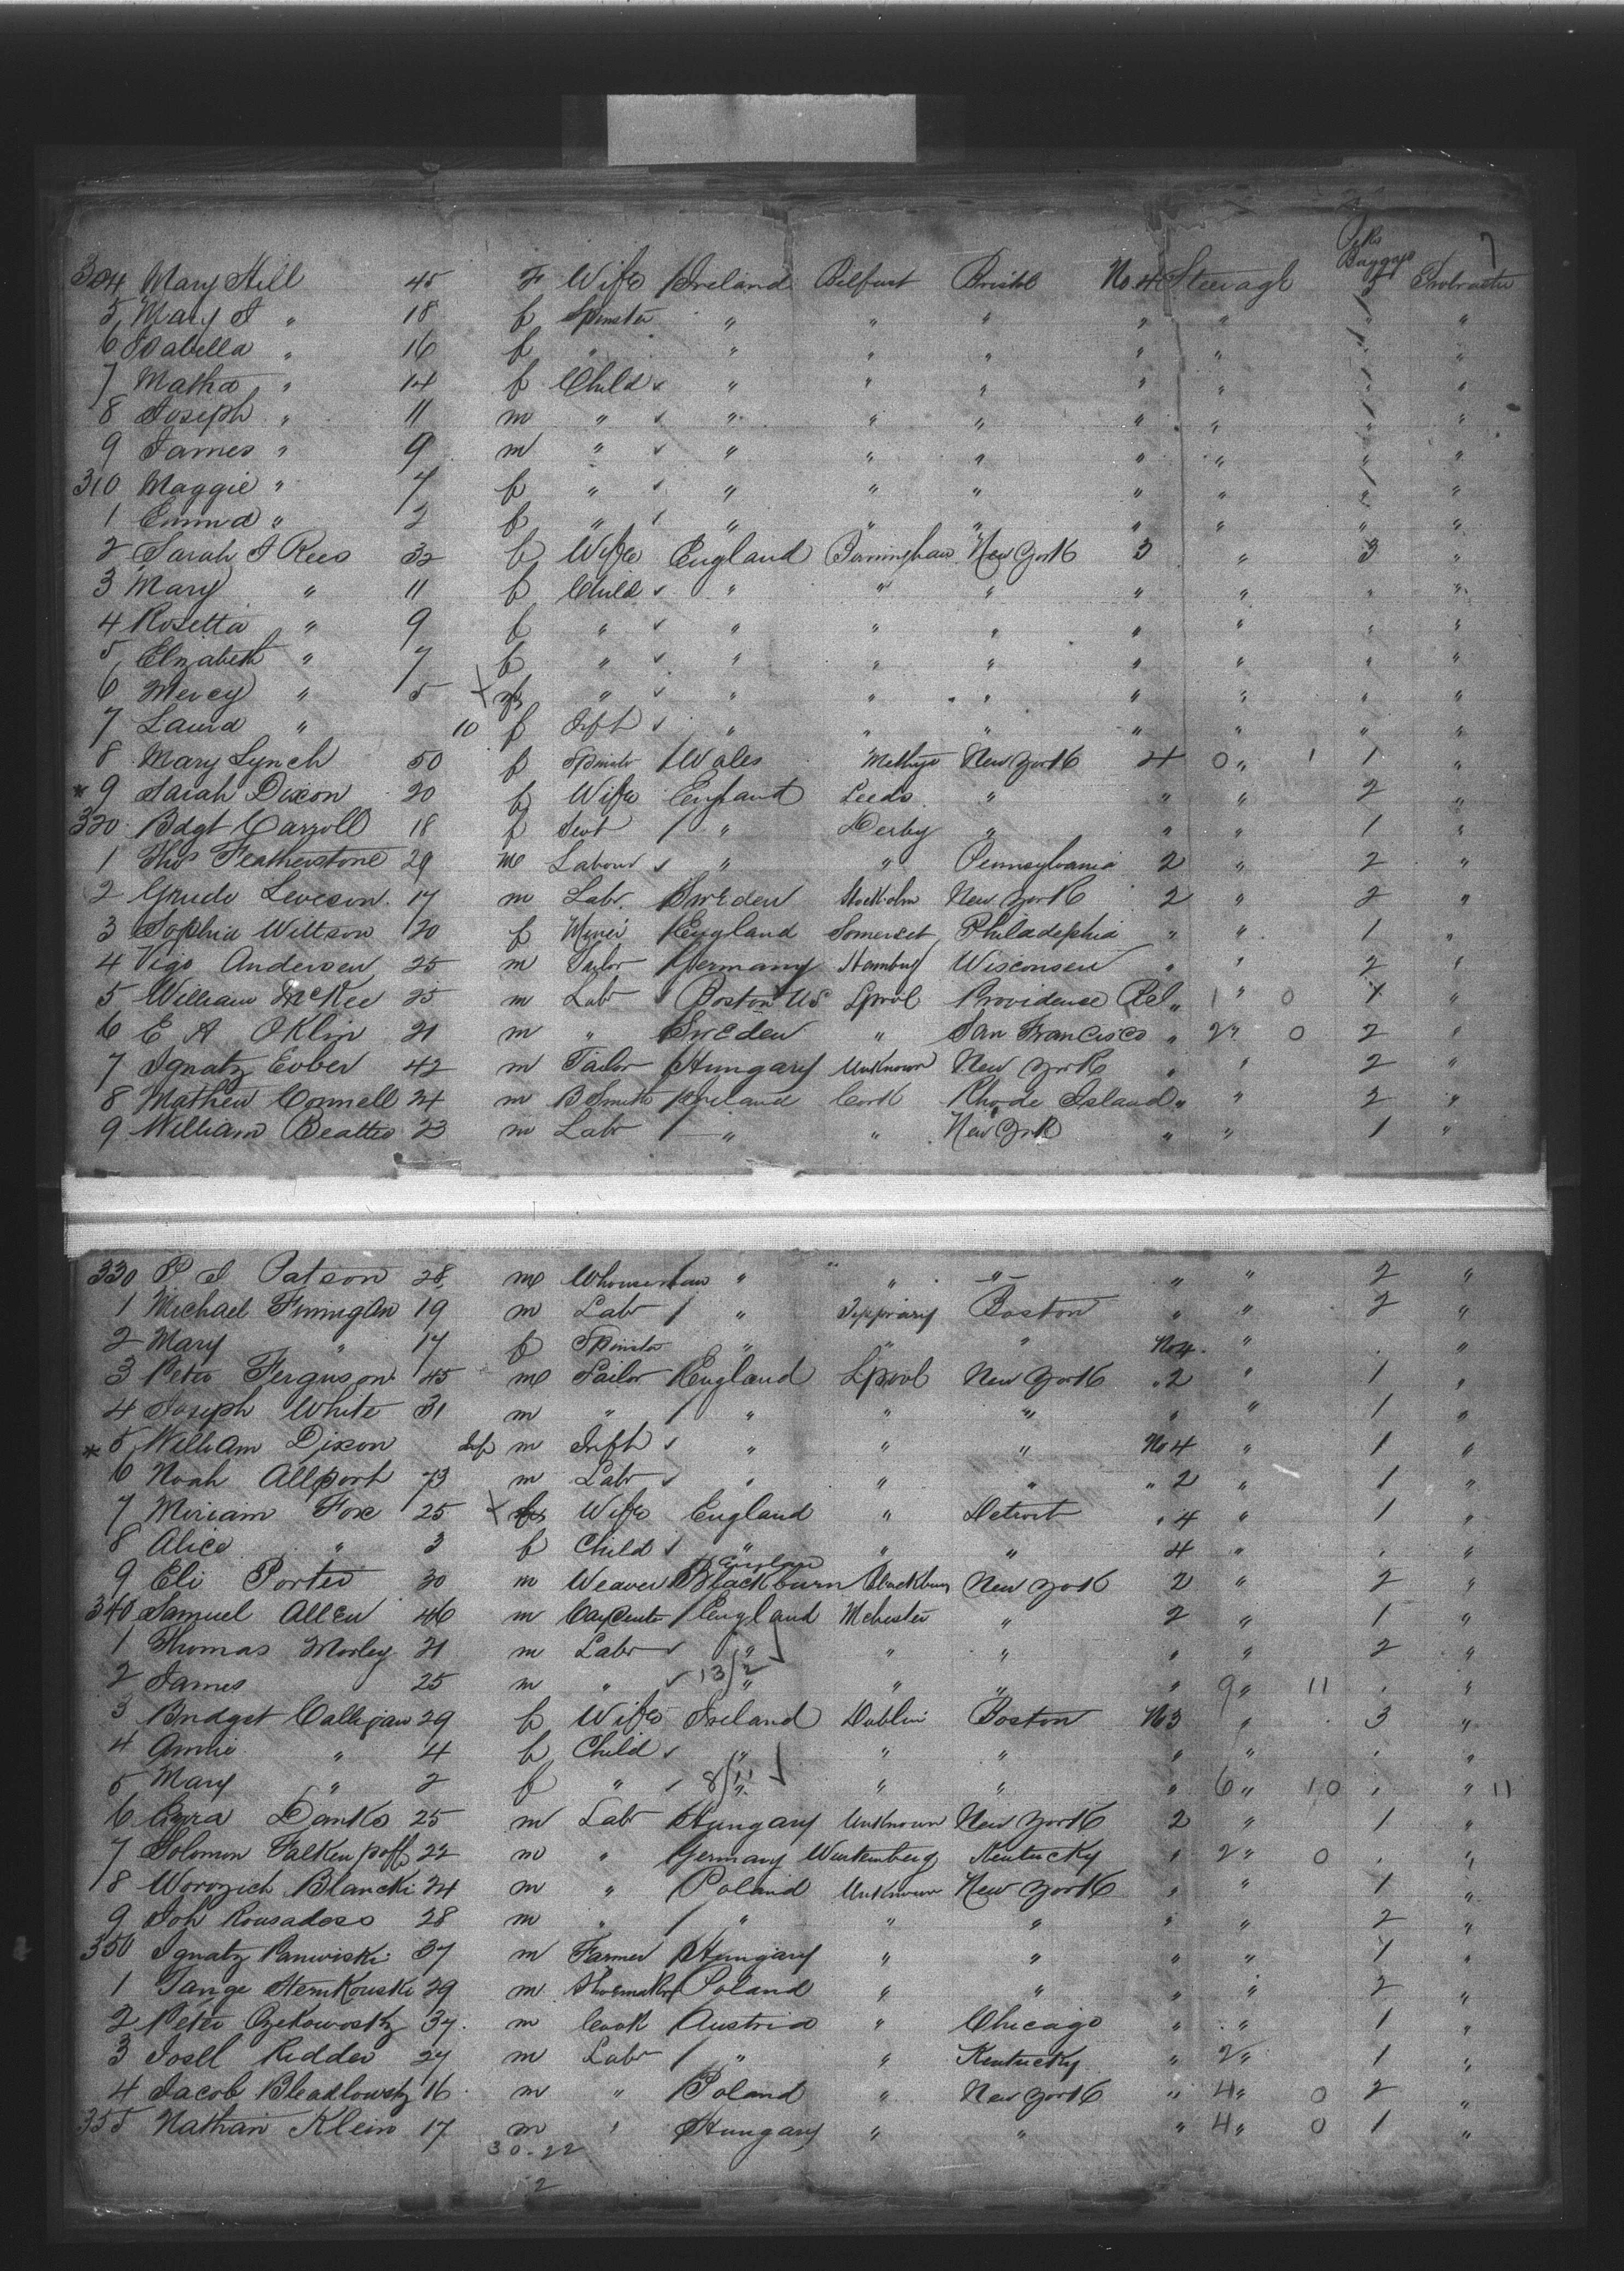 Pks
Baggage 7
304 Mary Hill 45 F Wife Ireland Belfast Bristol No 4 Steerage 3 Protracted
5 Mary J " 18 f Spinster " " " " " " "
6 Isabella " 16 f " " " " " " " "
7 Matha " 14 f Child " " " " " " "
8 Joseph " 11 m " " " " " " " "
9 James " 9 m " " " " " " " "
310 Maggie " 7 f " " " " " " " "
1 Emma " 2 f " " " " " " " "
2 Sarah J Rees 32 f Wife England Birmingham New York 3 " 3 "
3 Mary " 11 f Child " " " " " " "
4 Rosetta " 9 f " " " " " " " "
5 Elizabeth " 7 f " " " " " " " "
6 Mercy " 5 f " " " " " " " "
7 Laura " 10 f Inft " " " " " " "
8 Mary Lynch 50 f Spinster Wales Methyr New York 4 0 " 1 1 "
* 9 Sarah Dixon 20 f Wife England Leeds " " " 2 "
320 Bdgt Carroll 18 f Servt " Derby " " " 1 "
1 Thos Featherstone 29 m Labour " " Pennsylvania 2 " 2 "
2 Leveson 17 m Labr Sweden Stockholm New York 2 " 2 "
3 Sophia Wittson 20 f England Somerset Philadephia " " 1 "
4 Vigo Andersen 25 m Tailor Germany Hamburg Wisconsin " " 2 "
5 William McKee 25 m Labr Boston US Lpool Providence " 1 " 0 1 "
6 E A Oklin 21 m " Sweden " San Francisco " 2 " 0 2 "
7 Ignatz Eober 42 m Tailor Hungary Unknown New York " " 2 "
8 Mathew Connell 24 m B Smith Ireland Cork Rhode Island " " 2 "
9 William Beattie 23 m Labr " " New York " " 1 "
330 P J Patson 28 m Whouseman " " " " " 2 "
1 Michael Finnigan 19 m Labr " Tipprary Boston " " 2 "
2 Mary " 17 f Spinster " " " No 4 " "
3 Peter Ferguson 45 m Sailor England Lpool New York 2 " 1 "
4 Joseph White 31 m " " " " " " 1 "
* 5 William Dixon Inf m Inft " " " No 4 " 1 "
6 Noah Allport 73 m Labr " " " 2 " 1 "
7 Miriam Fox 25 f Wife England " Detroit 4 " 1 "
8 Alice " 3 f Child " " " 4 " "
England
9 Eli Porter 30 m Weaver Blackburn Blackburn New York 2 " 2 "
340 Samuel Allen 46 m Carpenter England Mchester " 2 " 1 "
1 Thomas Morley 21 m Labr " " " " " 2 "
2 James 25 m " 13/2 " " " " 9 " 11 "
3 Bridget Calligan 29 f Wife Ireland Dublin Boston No 3 " 3 "
4 Annie " 4 f Child " " " " " "
5 Mary " 2 f " 8/11 " " " " 6 " 10 " 11
6 Danko 25 m Labr Hungary Unknown New York 2 " 1 "
7 Solomon Falkenpoff 22 m " Germany Wurtemberg Kentucky " 2 " 0 "
8 Blancki 24 m " Poland Unknown New York " " 1 "
9 Joh Rousadoss 28 m " " " " " " 2 "
350 Ignatz Paniviski 37 m Farmer Hungary " " " " 1 "
1 Tange Sternkouski 29 m Shoemaker Poland " " " " 2 "
2 Peter 34 m Cook Austria " Chicago " " 1 "
3 Josll Ridder 27 m Labr " " Kentucky " 2 " 1 "
4 Jacob Bleadlowsky 16 m " Poland " New York " 4 " 0 2 "
355 Nathan Klein 17 m " Hungary " " " 4 " 0 1 "
30-22
2